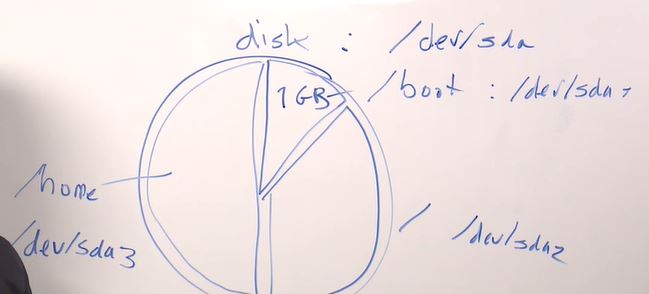 disk : /dev/sda
1 GB
/boot : /dev/sda1
/home
/dev/sda3
/ /dev/sda2